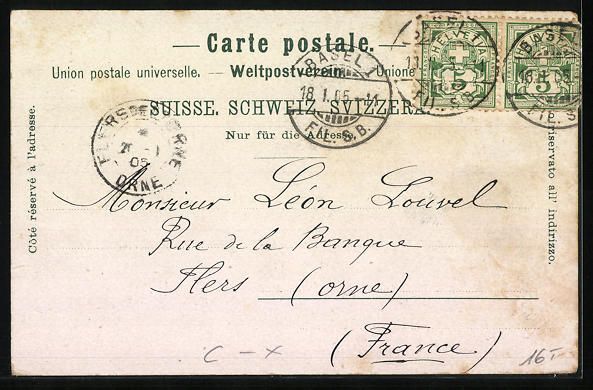 — Carte postale. —
Union postale universelle. — Weltpostverein. — Unione
SUISSE. SCHWEIZ. SVIZZERA.
Nur für die Adresse.
Côté réservé à l'adresse.
riservato all' indirizzo.
HELVETIA
5
5
BASEL
18.I.05.-11
FIL. S.B.
BASEL
FIL. S.B.
BASEL
18.I.05
FIL. S
FLERS DE L'ORNE
05
ORNE
Monsieur Léon Louvel
Rue de la Banque
Flers (Orne)
(France)
C - x
16.-